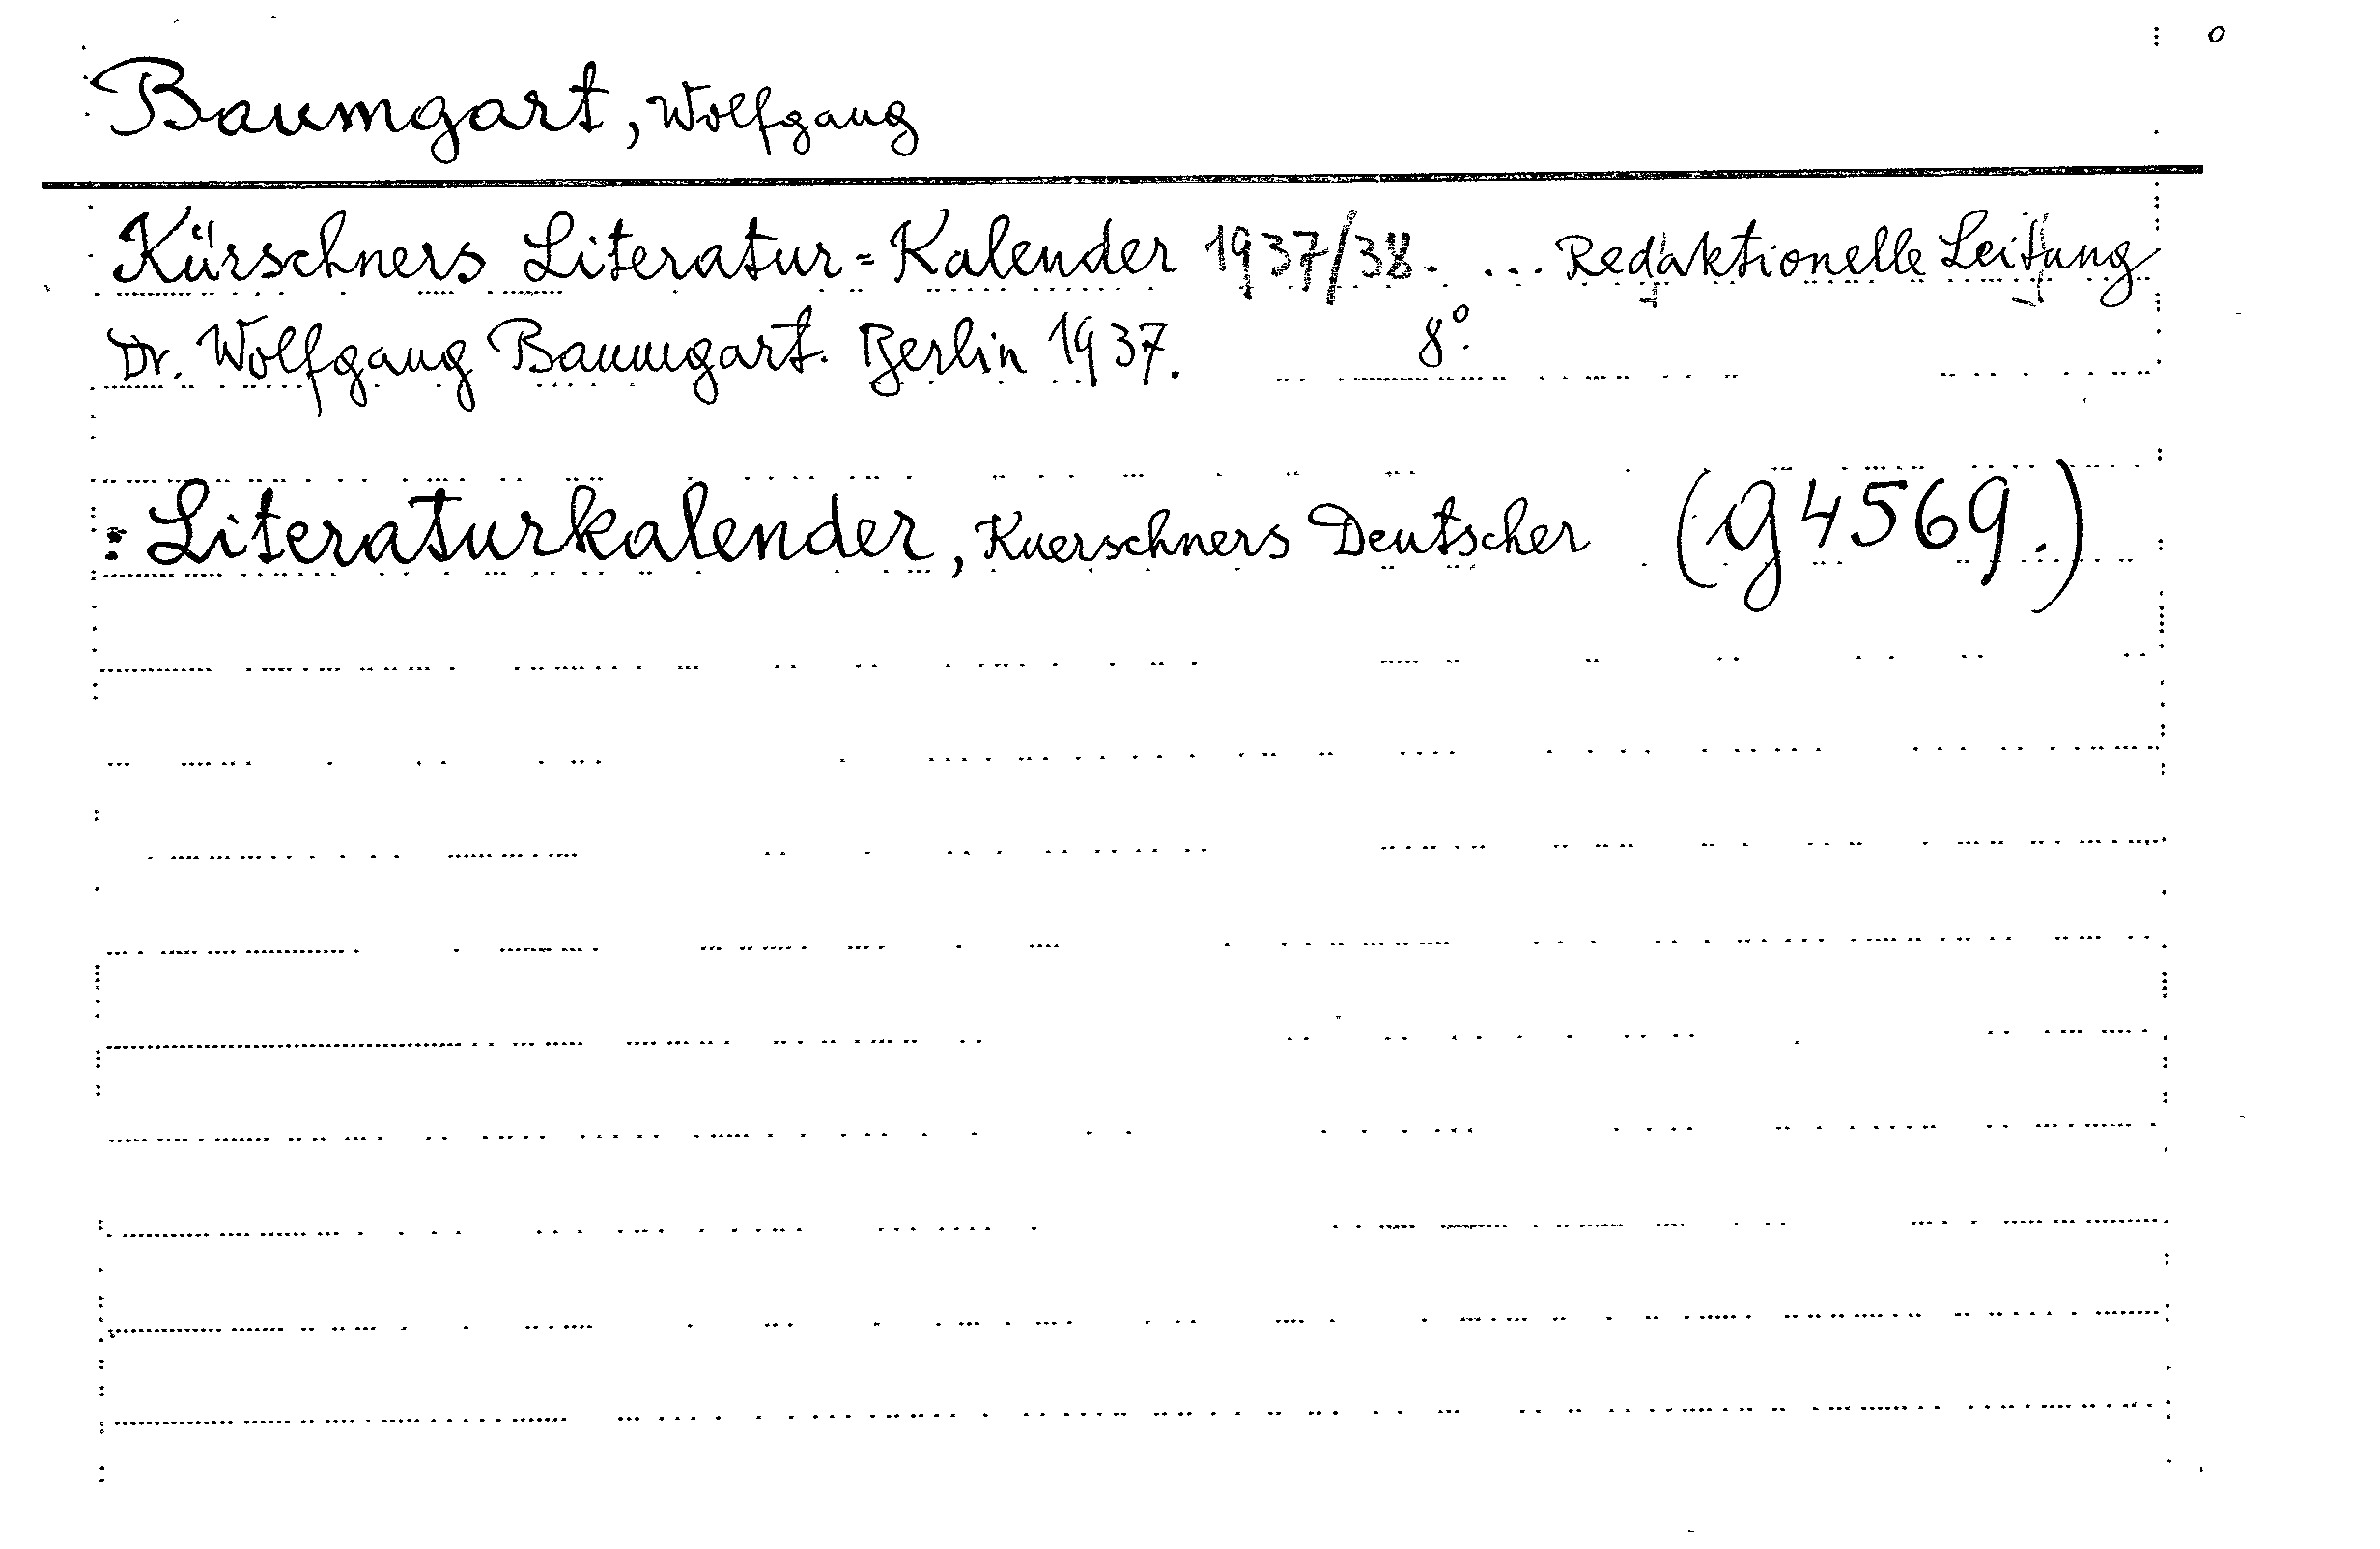 Baumgart, Wolfgang
Kürschners Literatur=Kalender 1937/38. ... Redaktionelle Leitung
Dr. Wolfgang Baumgart. Berlin 1937. 8°.
: Literaturkalender, Kuerschners Deutscher (g 4569.)